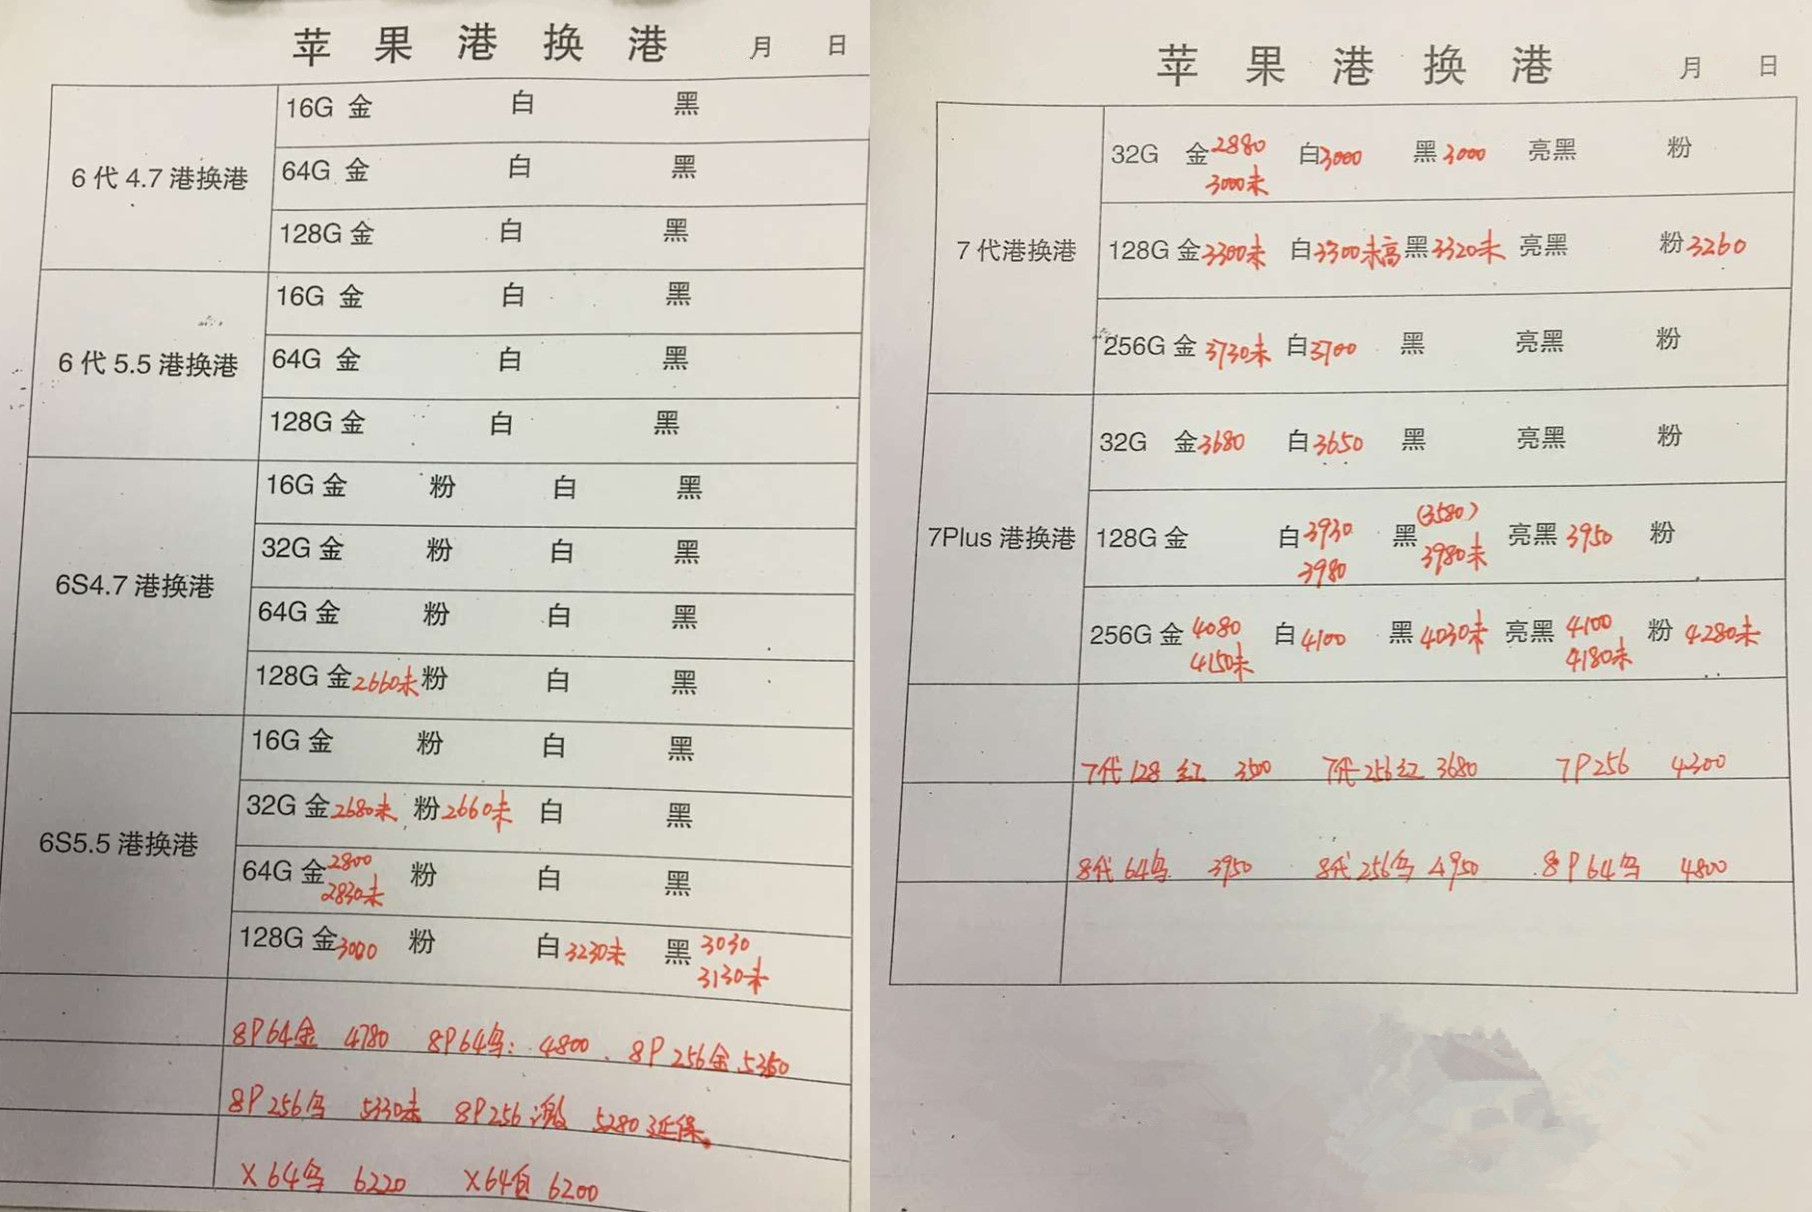 苹果港换港 月 日
6代4.7港换港
16G 金 白 黑
64G 金 白 黑
128G 金 白 黑
6代5.5港换港
16G 金 白 黑
64G 金 白 黑
128G 金 白 黑
6S4.7港换港
16G 金 粉 白 黑
32G 金 粉 白 黑
64G 金 粉 白 黑
128G 金 2660未 粉 白 黑
6S5.5港换港
16G 金 粉 白 黑
32G 金 2680未 粉 2660未 白 黑
64G 金 2800 粉 白 黑
2830未
128G 金 3000 粉 白 3230未 黑 3030
3130未
8P64金 4780 8P64乌: 4800 8P256金 5350
8P256乌 5330未 8P256激 5280延保
X64乌 6220 X64白 6200
苹果港换港 月 日
7代港换港
32G 金 2880 白 3000 黑 3000 亮黑 粉
3000未
128G 金 3300未 白 3300未高 黑 3320未 亮黑 粉 3260
256G 金 3730未 白 3700 黑 亮黑 粉
7Plus港换港
32G 金 3680 白 3650 黑 亮黑 粉
(3580)
128G 金 白 3930 黑 3980未 亮黑 3950 粉
3980
256G 金 4080 白 4100 黑 4030未 亮黑 4100 粉 4280未
4150未 4180未
7代128红 3500 7代256红 3680 7P256 4300
8代64乌 3950 8代256乌 4950 8P64乌 4800